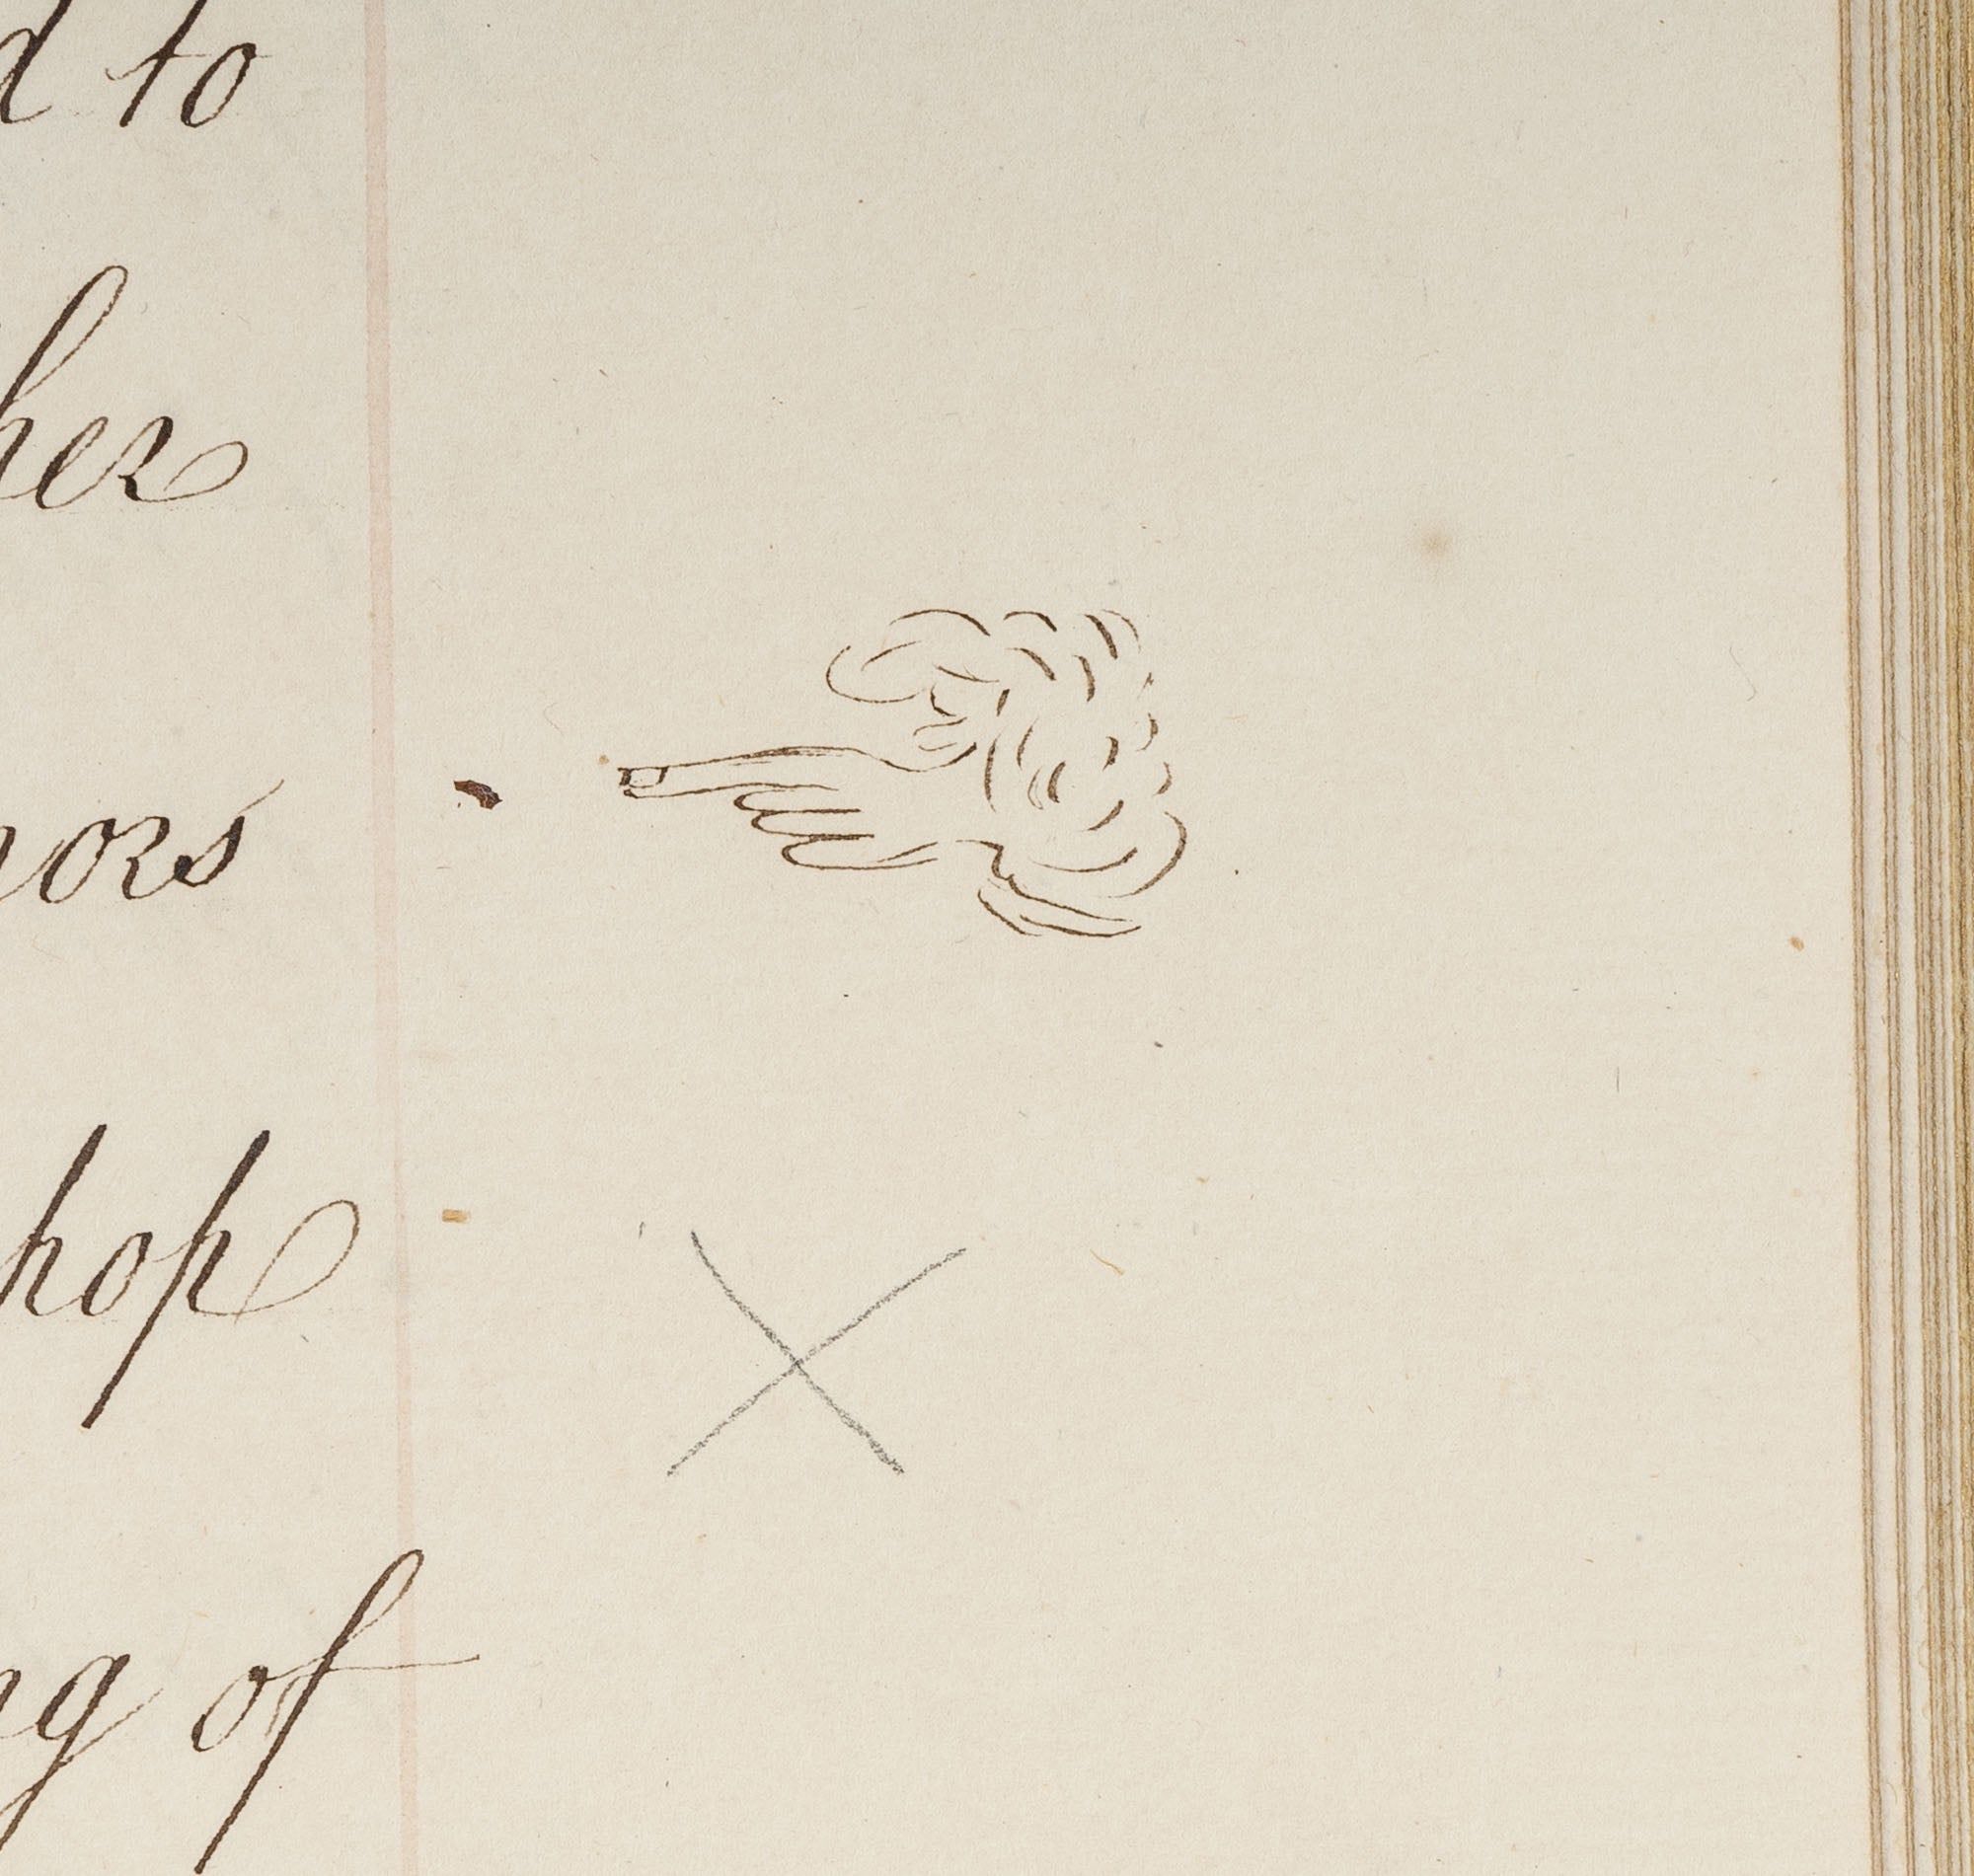 d to
her
nors
hop
ng of